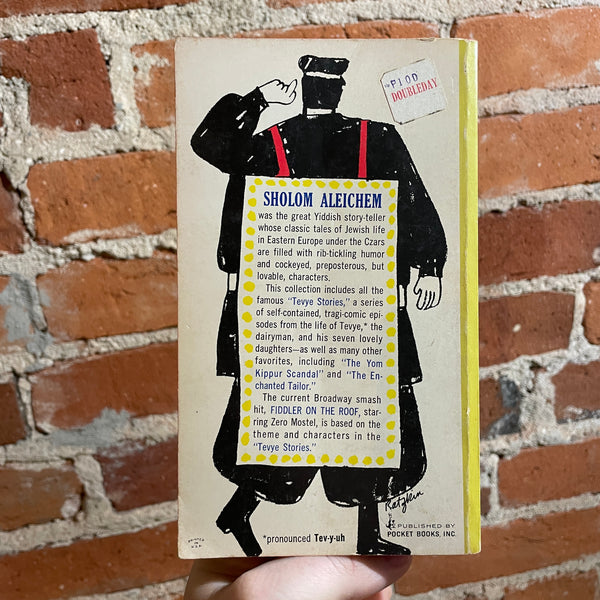 P1.00
DOUBLEDAY
SHOLOM ALEICHEM
was the great Yiddish story-teller
whose classic tales of Jewish life
in Eastern Europe under the Czars
are filled with rib-tickling humor
and cockeyed, preposterous, but
lovable, characters.
This collection includes all the
famous "Tevye Stories," a series
of self-contained, tragi-comic epi-
sodes from the life of Tevye,* the
dairyman, and his seven lovely
daughters—as well as many other
favorites, including "The Yom
Kippur Scandal" and "The En-
chanted Tailor."
The current Broadway smash
hit, FIDDLER ON THE ROOF, star-
ring Zero Mostel, is based on the
theme and characters in the
"Tevye Stories."
PUBLISHED BY
POCKET BOOKS, INC.
PRINTED
IN
U.S.A.
*pronounced Tev-y-uh